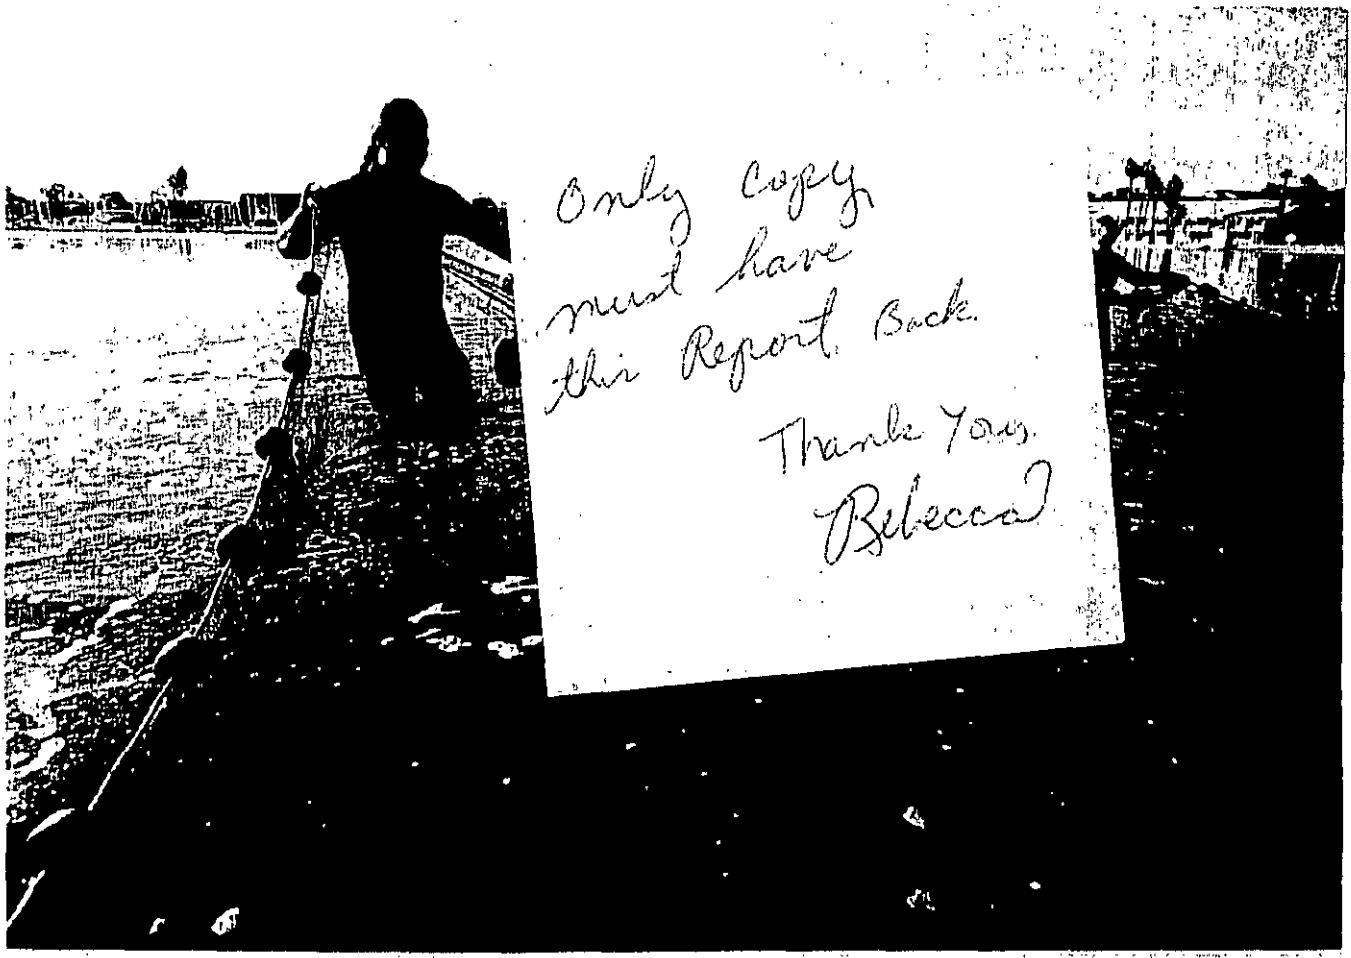 Only copy,
must have
this Report Back.
Thank You,
Rebecca